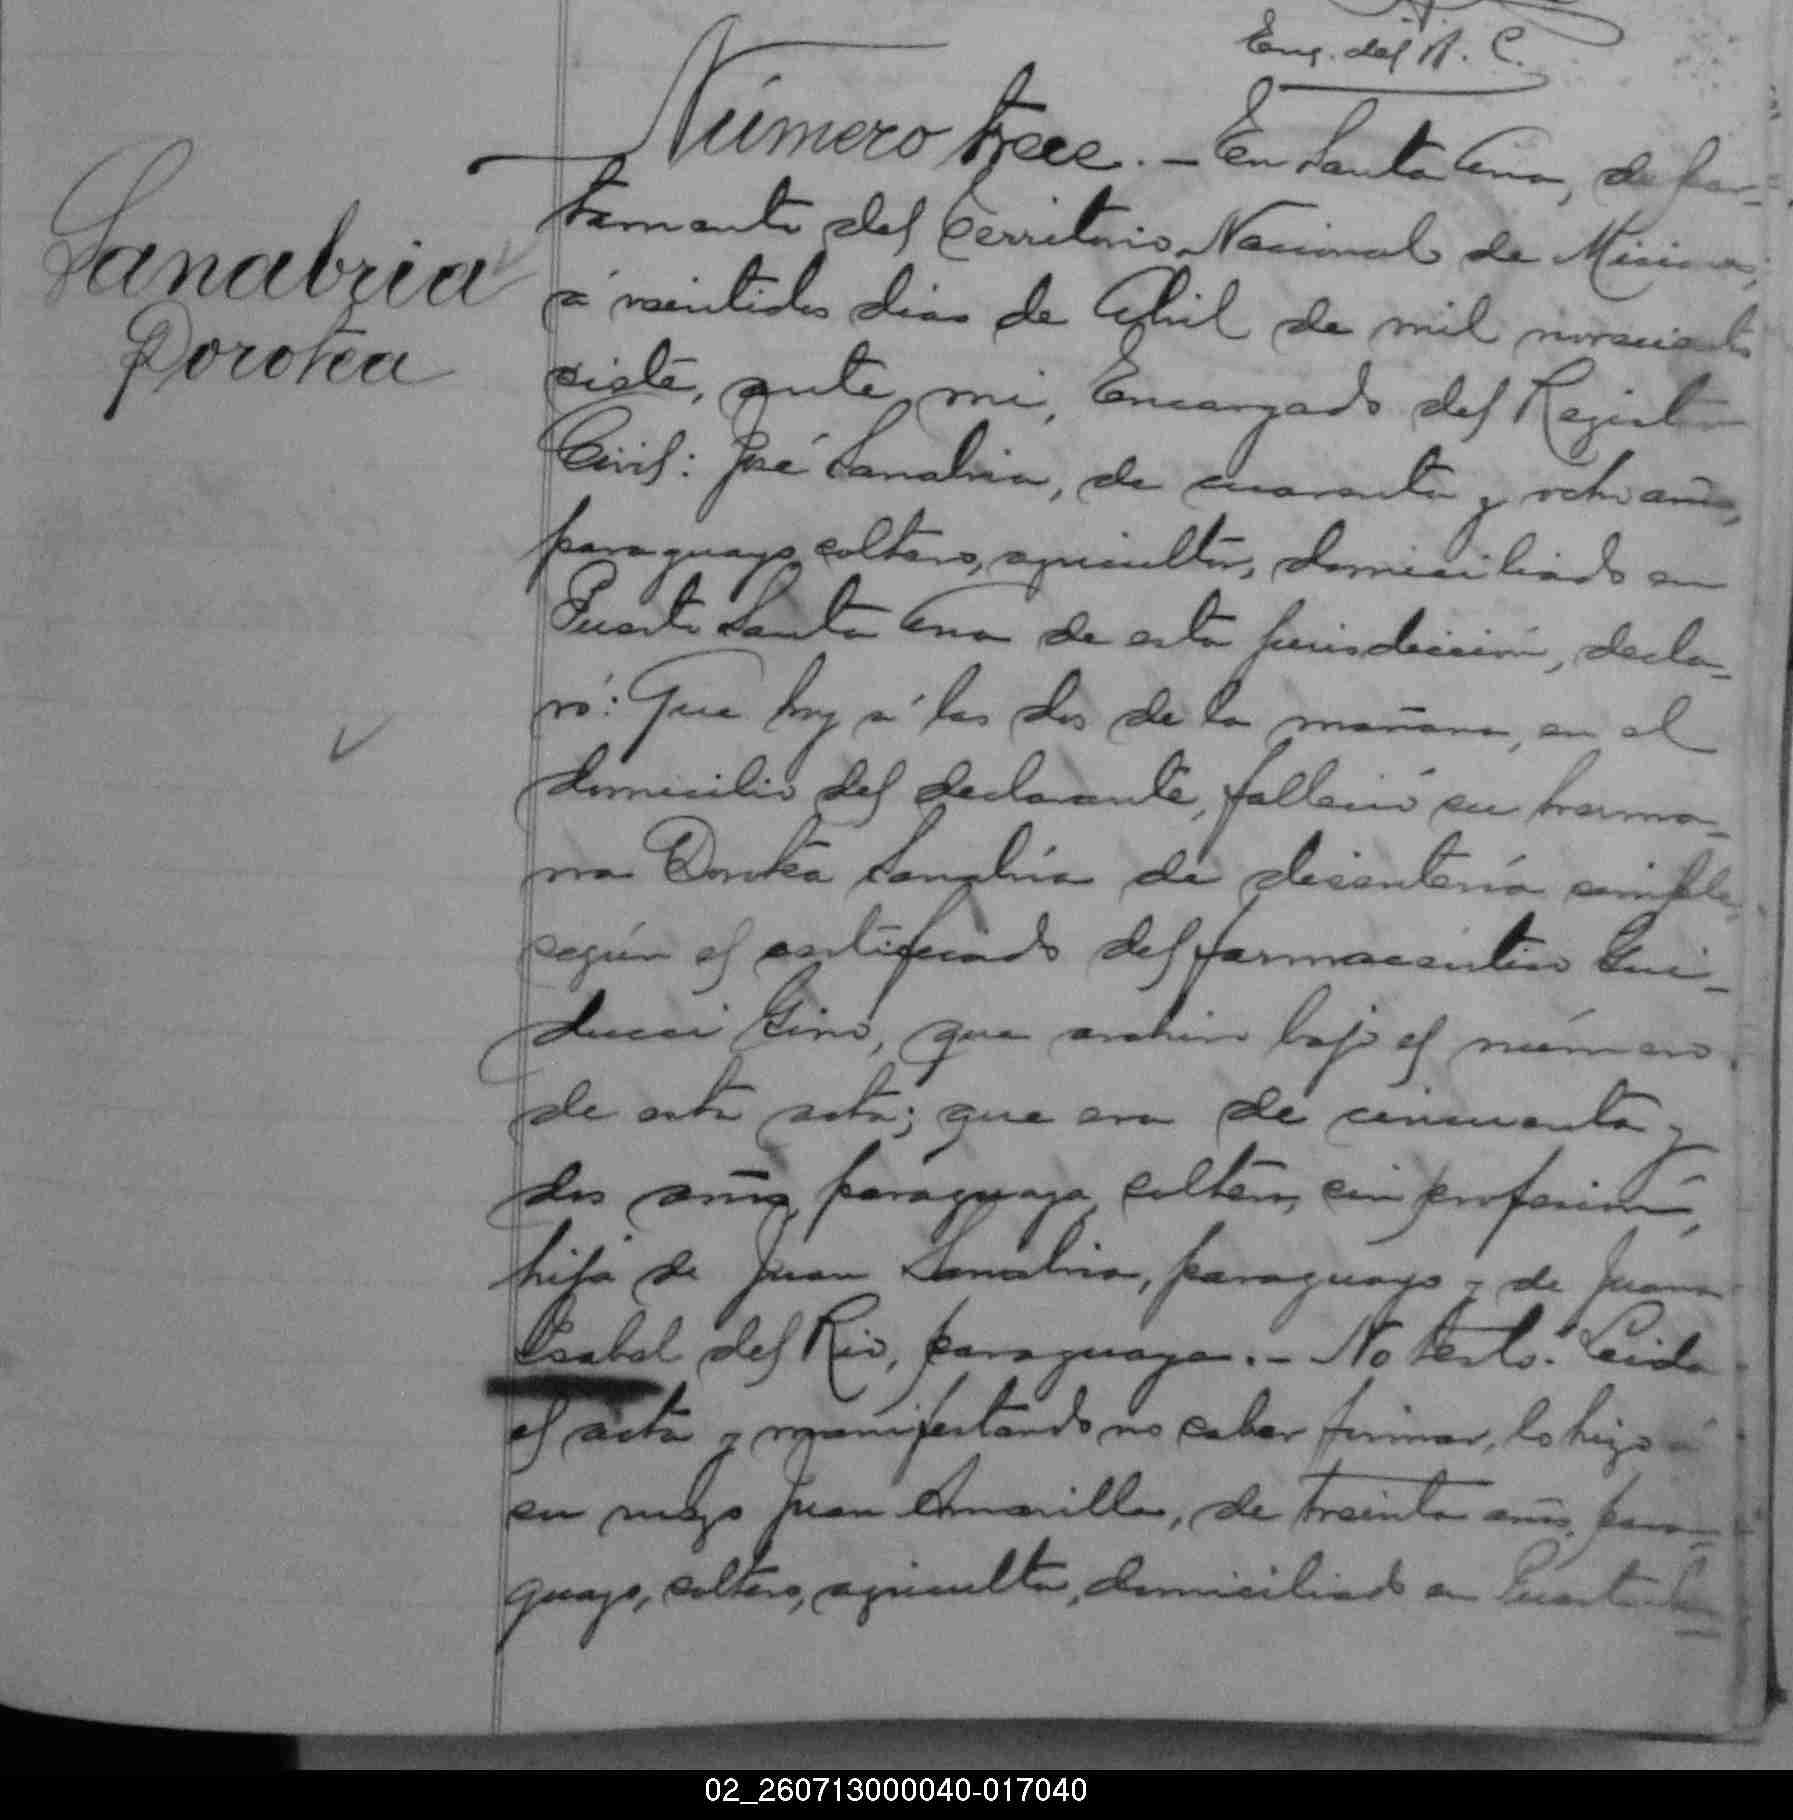 Enc. del R. C.
Número trece. — En Santa Ana, depar-
tamento del Territorio Nacional de Misiones,
á veintidos dias de Abril de mil novecientos
siete, ante mi, Encargado del Registro
Civil: José Sanabria, de cuarenta y ocho años,
paraguayo, soltero, agricultor, domiciliado en
Puerto Santa Ana de esta jurisdicción, decla-
ró: Que hoy á las dos de la mañana, en el
domicilio del declarante, falleció su herma-
na Dorotea Sanabria de disentería simple,
según el certificado del farmaceutico Gui-
ducci Gino, que archivo bajo el número
de esta acta; que era de cincuenta y
dos años, paraguaya, soltera, sin profesión,
hija de Juan Sanabria, paraguayo y de Juana
Isabel del Rio, paraguaya. — No testó. Leida
el acta y manifestando no saber firmar, lo hizo á
su ruego Juan Amarilla, de treinta años, para-
guayo, soltero, agricultor, domiciliado en Puerto
Sanabria
Dorotea
02_260713000040-017040